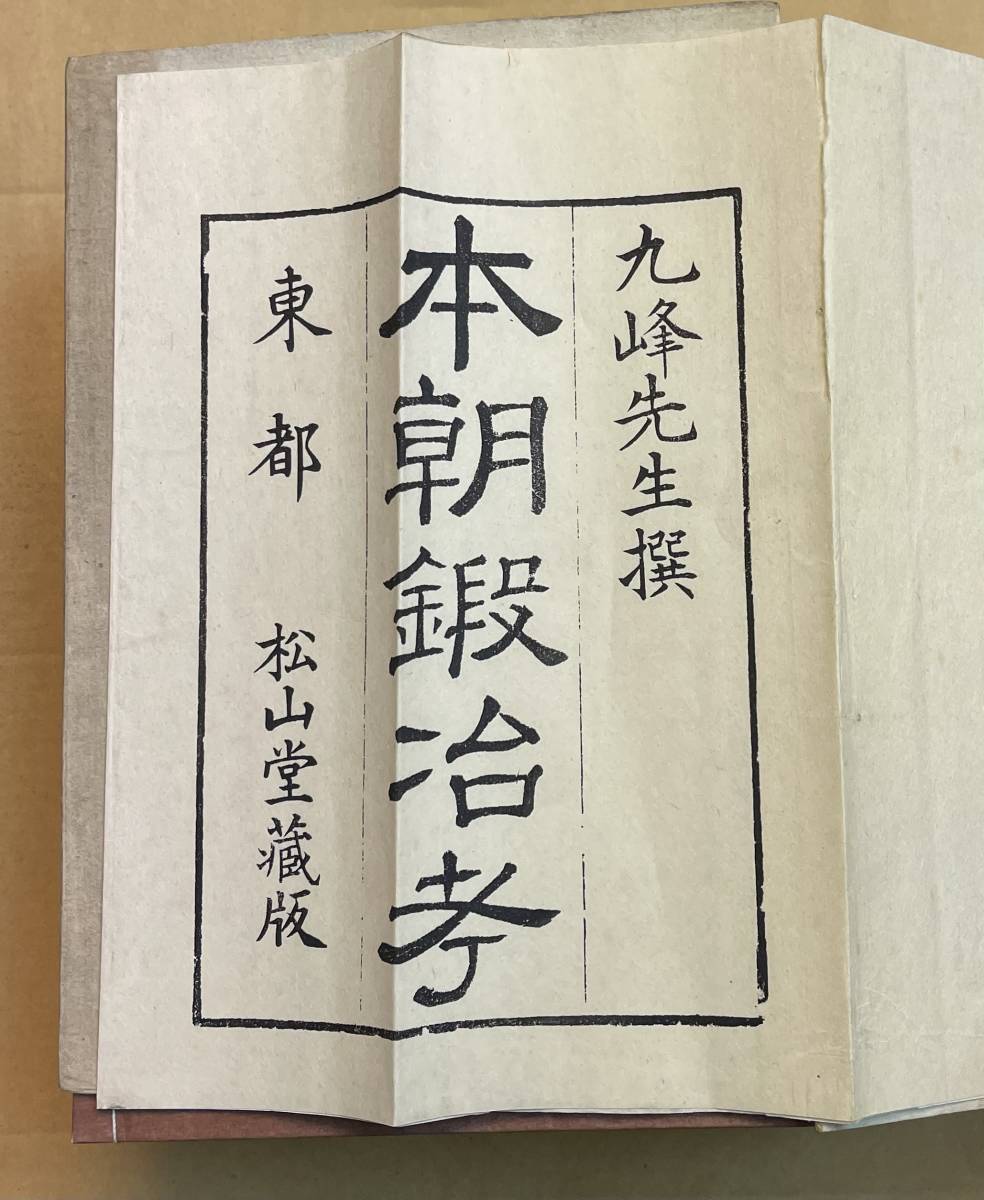 九峰先生撰
本朝鍛冶考
東都 松山堂藏版